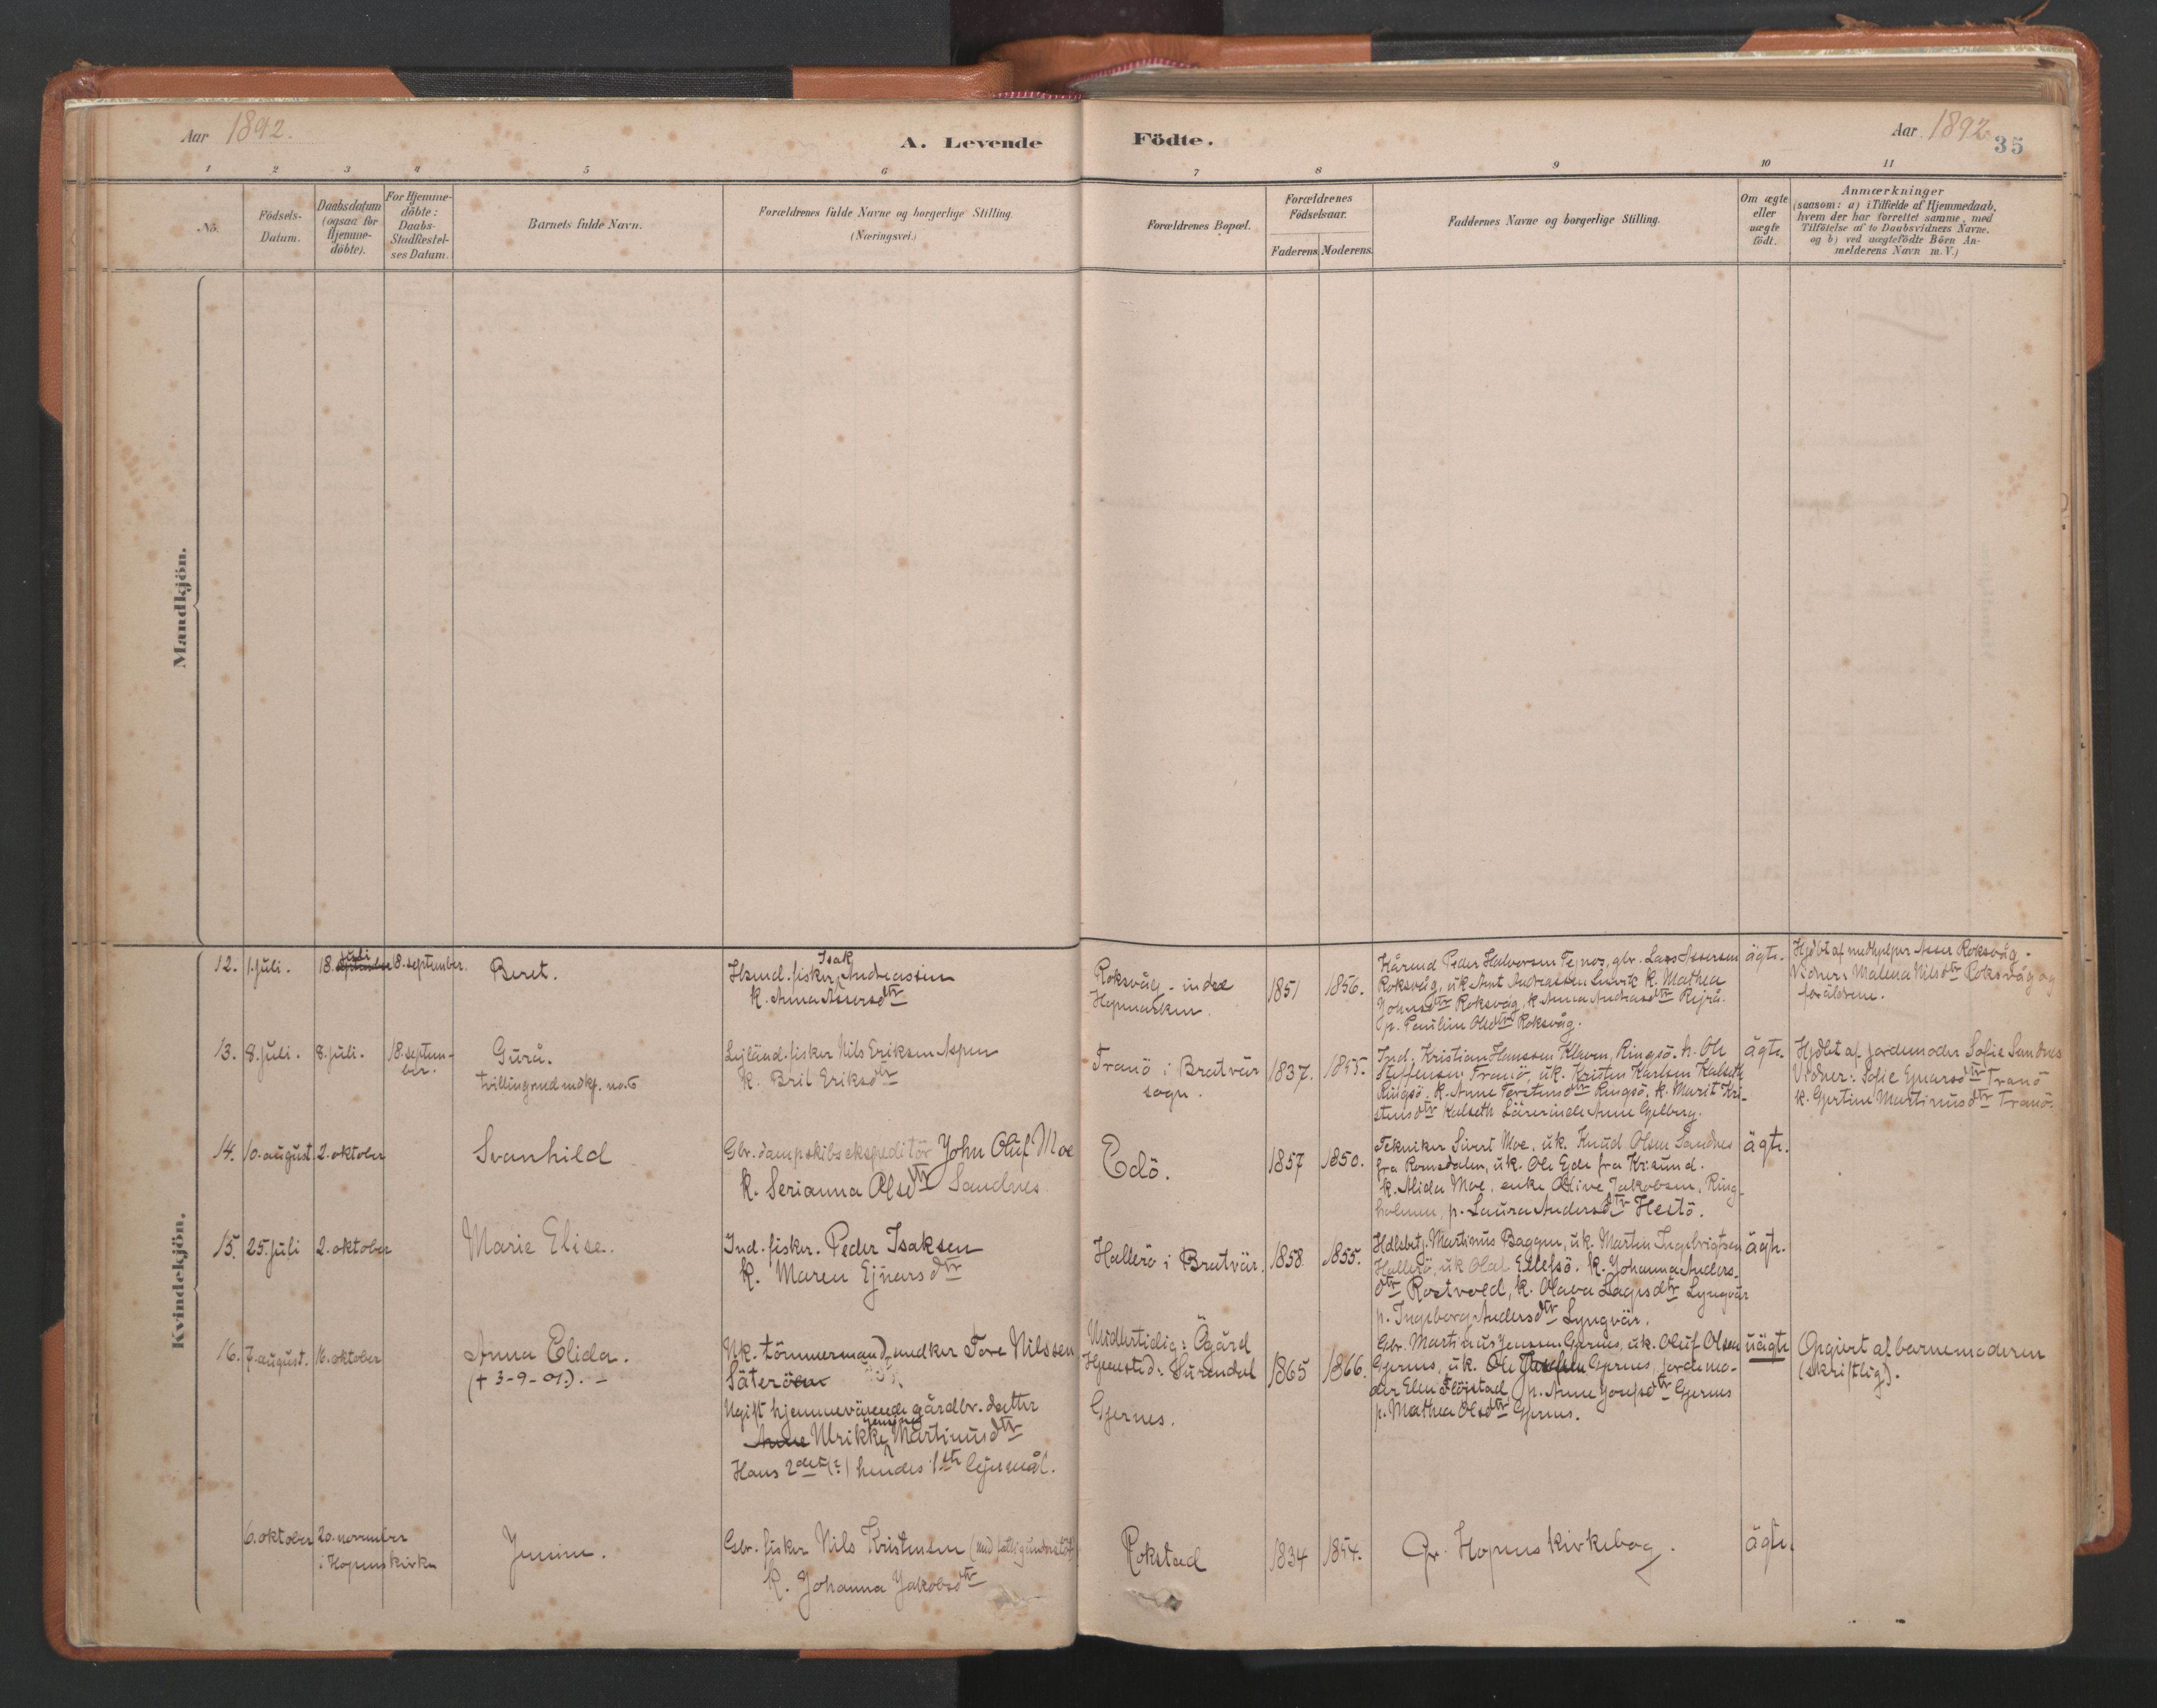 Aar 1892.
A. Levende Födte.
Aar 1892
35
1 2 3 4 5 6 7 8 9 10 11
No.
Födsels-
Datum.
Daabsdatum
(ogsaa for
Hjemme-
döbte).
For Hjemme-
döbte:
Daabs-
Stadfæstel-
ses Datum.
Barnets fulde Navn.
Forældrenes fulde Navne og borgerlige Stilling.
(Næringsvei.)
Forældrenes Bopæl.
Forældrenes
Födselsaar.
Faderens. Moderens.
Faddernes Navne og borgerlige Stilling.
Om ægte
eller
uægte
födt.
Anmærkninger
(saasom: a) i Tilfælde af Hjemmedaab,
hvem der har forrettet samme, med
Tilföielse af to Daabsvidners Navne.
og b) ved uægtefödte Börn An-
melderens Navn m. V.)
Mandkjön.
Kvindekjön.
12. 1. juli.
juli
18. september
18. september.
Beret.
Isak
Hsmd. fisker Andreassen
k. Anna Assersdtr
Roksvåg - indre
Hopmarken.
1851 1856.
Kårmd Peder Halvorsen Fejnes, gbr. Lars Assersen
Roksvåg, uk Arnt Andreassen Leirvik k. Mathea
Johnsdtr Roksvåg, k Anna Andreasdtr Rejrå.
p. Pauline Olsdtr Roksvåg.
ägte.
Hjdbt af medhjelper Asser Roksvåg.
Vidner: Malena Nilsdtr Roksvåg og
foräldrene.
13. 8. juli. 8. juli.
18. septem-
ber.
Gurå.
tvilling med mdkj. no. 6
Lejländ. fisker Nils Eriksen Aspen
k. Brit Eriksdtr
Tranö i Bratvär
sogn.
1837. 1845.
Ind. Kristian Hanssen Klaven, Ringsö. h. Ole
Steffensen Tranö, uk. Kristen Karlsen Kalseth
Ringsö. k. Anne Torstensdtr Ringsö. k. Marit Kri-
stensdtr Kalseth Lärerinde Anne Gjelberg.
ägte.
Hjdbt af jordemoder Sofie Sandnes
Vidner: Sofie Ejnarsdtr Tranö
k. Gjertine Martinusdtr Tranö.
14. 10. august 2. oktober
Svanhild
Gbr. dampskibsekspeditör John Oluf Moe
k. Serianna Olsdtr Sandnes.
Edö.
1857 1850.
Tekniker Sivert Moe, uk. Knud Olsen Sandnes
fra Romsdalen, uk. Ole Eide fra Krisund.
k. Alida Moe. enke Oline Jakobsen, Ring-
holmen, p. Laura Andersdtr Hestö.
ägte.
15. 25. juli 2. oktober
Marie Elise.
Ind. fisker. Peder Isaksen
k. Maren Ejnarsdtr
Hallerö i Bratvär.
1858 1855.
Hdlsbetj. Martinus Baggen, uk. Martin Ingebrigtsen
Hallerö, uk Olaf Ellefsö. k. Johanna Anders-
dtr Rostvold, k. Olava Lagesdtr Lyngvär
p. Ingeborg Andersdtr Lyngvär.
ägte.
16. 7. august. 16. oktober
Anna Elida.
(+ 3-9-01). -
Uk. tömmermand, snedker Tore Nilssen
Säteröen
Ugift hjemmevärende gårdbr. datter
Jensine
Anne Ulrikke Martinusdtr
Hans 2det (?) hendes 1ste lejermål.
Midlertidig: Ögård
Hjemsted: Surendal
Gjernes.
1865 1866.
Gbr. Martinus Jenssen Gjernes, uk. Oluf Olsen
Gjernes, uk. Ole Gjernes, jordemo-
der Elen Flöjstad, p. Anne Josefsdtr Gjernes
p. Mathea Olsdtr Gjernes.
uägte
Opgivet af barnemoderen
(skriftlig).
6. oktober 20. november
i Hopens kirke
Jensine.
Gbr. fisker Nils Kristensen (med fattigunderstöt)
k. Johanna Jakobsdtr
Rokstad
1834 1854.
Gr. Hopens kirkebog.
ägte.